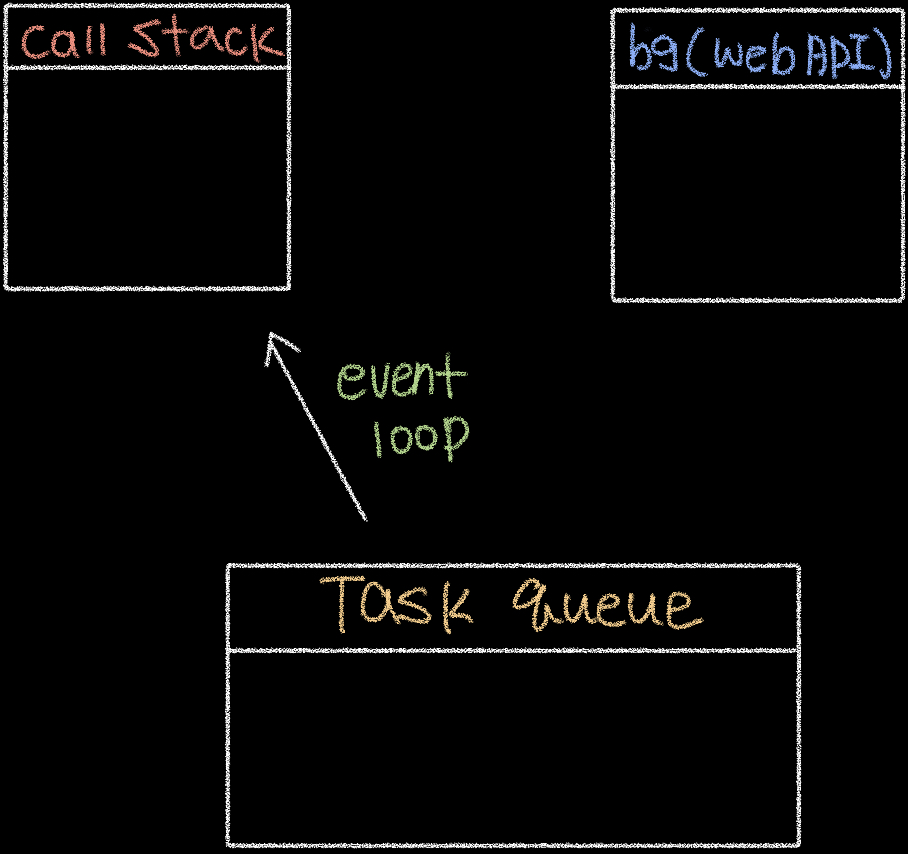 call stack
bg(web API)
event
loop
Task queue